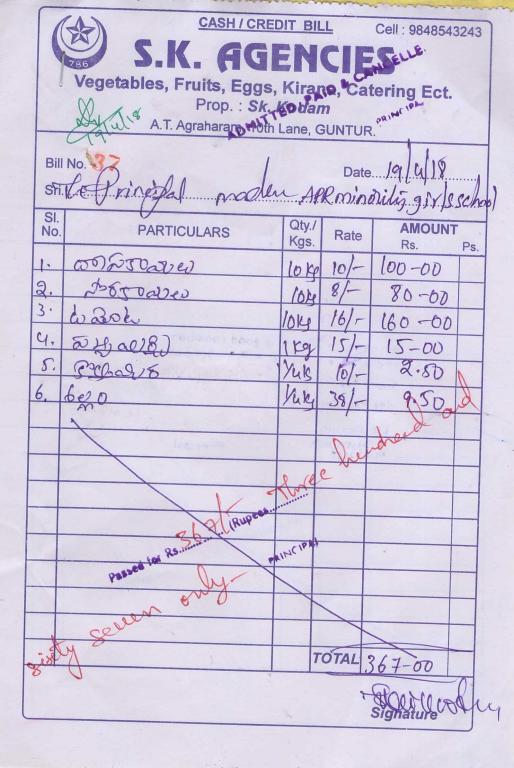 CASH / CREDIT BILL
Cell : 9848543243
786
S.K. AGENCIES
Vegetables, Fruits, Eggs, Kirana, Catering Ect.
Prop. : Sk. Kadam
A.T. Agraharam, 10th Lane, GUNTUR.
ADMITTED, PAID & CANCELLE
PRINCIPAL
19/4/18
Bill No. 37
Date 19/4/18
Sri. Principal APR minority girls school
Sl. No. PARTICULARS Qty./ Kgs. Rate AMOUNT Rs. Ps.
1. 10kg 10/- 100-00
2. 10kg 8/- 80-00
3. టమోటా 10kg 16/- 160-00
4. పచ్చిమిర్చి 1kg 15/- 15-00
5. 1/4kg 10/- 2.50
6. అల్లం 1/4kg 38/- 9.50
Passed for Rs. 367/- (Rupees Three hundred and
sixty seven only-
PRINCIPAL
TOTAL 367-00
Signature